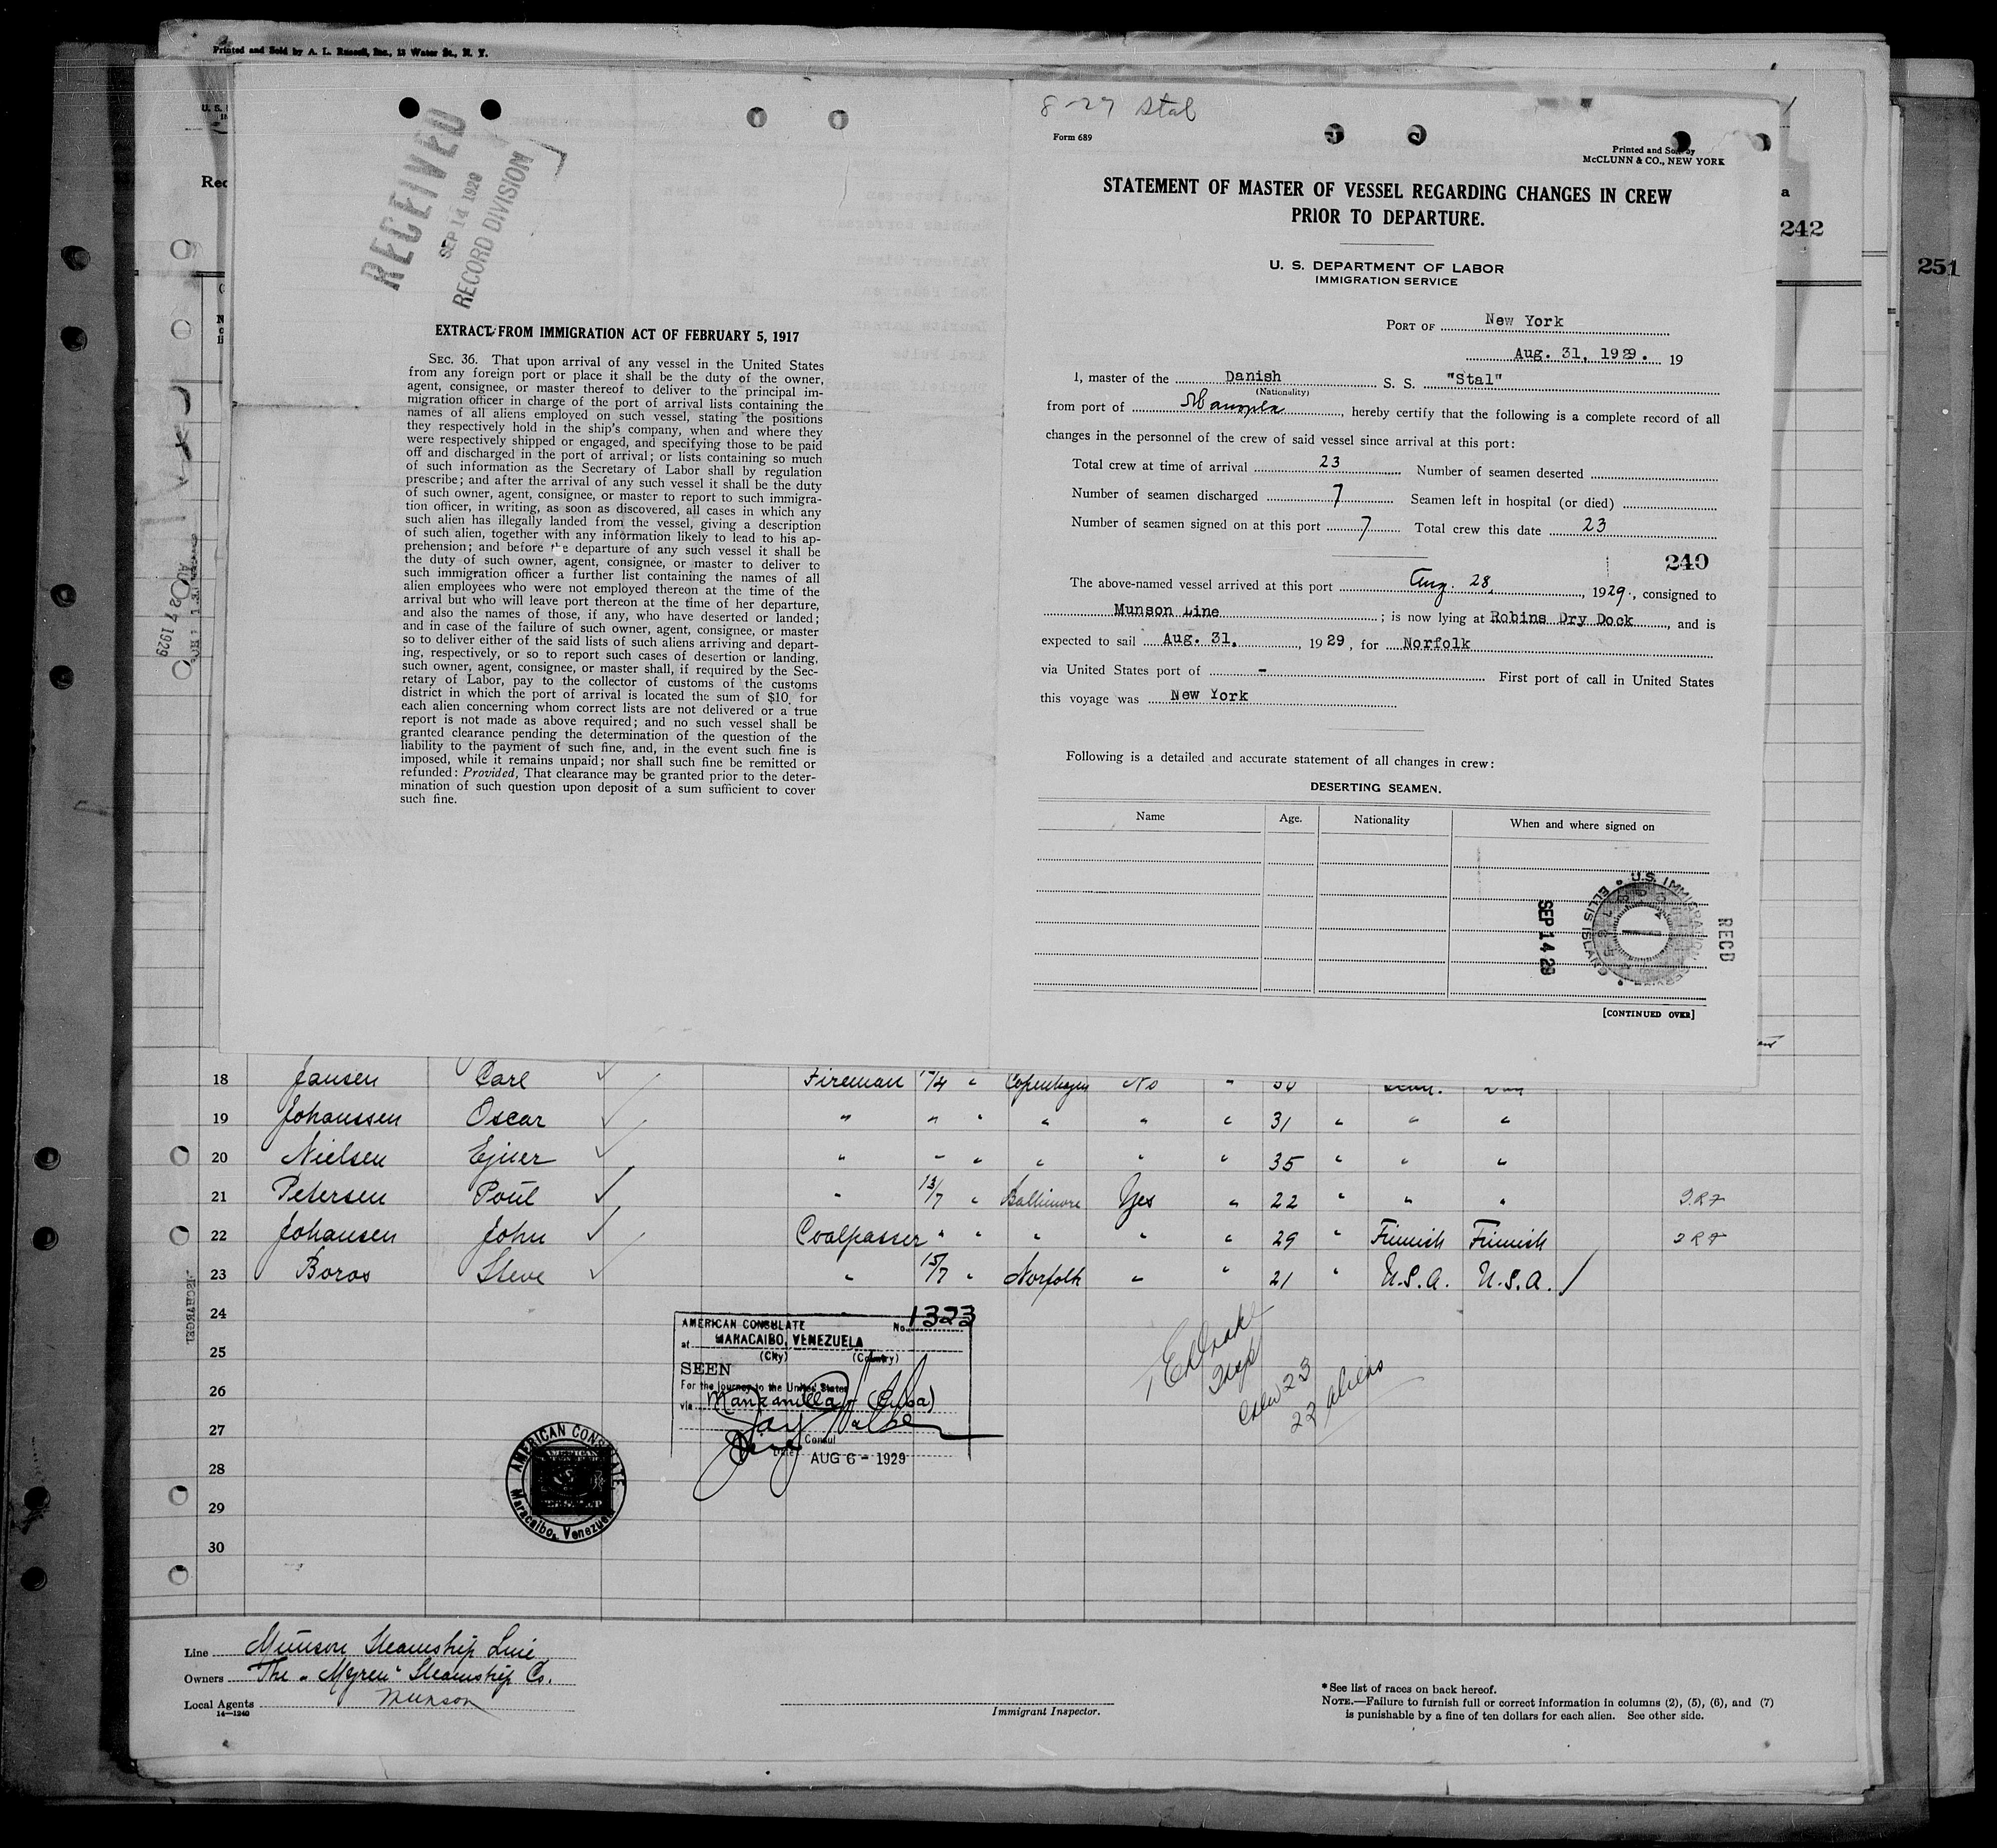 Printed and Sold by A. L. Russell, Inc., 13 Water St., N. Y.
U. S.
Rec
a
242
251
RECEIVED
SEP 14 1929
RECORD DIVISION
EXTRACT FROM IMMIGRATION ACT OF FEBRUARY 5, 1917
SEC. 36. That upon arrival of any vessel in the United States
from any foreign port or place it shall be the duty of the owner,
agent, consignee, or master thereof to deliver to the principal im-
migration officer in charge of the port of arrival lists containing the
names of all aliens employed on such vessel, stating the positions
they respectively hold in the ship's company, when and where they
were respectively shipped or engaged, and specifying those to be paid
off and discharged in the port of arrival; or lists containing so much
of such information as the Secretary of Labor shall by regulation
prescribe; and after the arrival of any such vessel it shall be the duty
of such owner, agent, consignee, or master to report to such immigra-
tion officer, in writing, as soon as discovered, all cases in which any
such alien has illegally landed from the vessel, giving a description
of such alien, together with any information likely to lead to his ap-
prehension; and before the departure of any such vessel it shall be
the duty of such owner, agent, consignee, or master to deliver to
such immigration officer a further list containing the names of all
alien employees who were not employed thereon at the time of the
arrival but who will leave port thereon at the time of her departure,
and also the names of those, if any, who have deserted or landed;
and in case of the failure of such owner, agent, consignee, or master
so to deliver either of the said lists of such aliens arriving and depart-
ing, respectively, or so to report such cases of desertion or landing,
such owner, agent, consignee, or master shall, if required by the Sec-
retary of Labor, pay to the collector of customs of the customs
district in which the port of arrival is located the sum of $10 for
each alien concerning whom correct lists are not delivered or a true
report is not made as above required; and no such vessel shall be
granted clearance pending the determination of the question of the
liability to the payment of such fine, and, in the event such fine is
imposed, while it remains unpaid; nor shall such fine be remitted or
refunded: Provided, That clearance may be granted prior to the deter-
mination of such question upon deposit of a sum sufficient to cover
such fine.
8-27 Stal
Form 689
Printed and Sold by
McCLUNN & CO., NEW YORK
STATEMENT OF MASTER OF VESSEL REGARDING CHANGES IN CREW
PRIOR TO DEPARTURE.
U. S. DEPARTMENT OF LABOR
IMMIGRATION SERVICE
PORT OF New York
Aug. 31, 1929. 19
I, master of the Danish S. S. "Stal"
(Nationality)
from port of , hereby certify that the following is a complete record of all
changes in the personnel of the crew of said vessel since arrival at this port:
Total crew at time of arrival 23 Number of seamen deserted
Number of seamen discharged 7 Seamen left in hospital (or died)
Number of seamen signed on at this port 7 Total crew this date 23
240
The above-named vessel arrived at this port Aug. 28, 1929., consigned to
Munson Line ; is now lying at Robins Dry Dock, and is
expected to sail Aug. 31, 1929, for Norfolk
via United States port of - First port of call in United States
this voyage was New York
Following is a detailed and accurate statement of all changes in crew:
DESERTING SEAMEN.
Name Age. Nationality When and where signed on
U.S. IMMIGRATION SERVICE ELLIS ISLAND
SEP 14 29
RECD
[CONTINUED OVER]
AUG 27 1929
18 Jansen Carl Fireman 17/4 " Copenhagen No "
19 Johanssen Oscar " " " " " " 31 " " "
20 Nielsen Ejner " " " " " " 35 " " "
21 Petersen Poul " 13/7 " Baltimore Yes " 22 " " "
22 Johansen John Coalpasser " " " " " 29 " Finnish Finnish
23 Boros Steve " 15/7 " Norfolk " " 21 " U.S.A. U.S.A.
24
25
26
27
28
29
30
AMERICAN CONSULATE No. 1323
at MARACAIBO, VENEZUELA
(City) (Country)
SEEN
For the journey to the United States
via Manzanilla (Cuba)
Consul
Date AUG 6 - 1929
AMERICAN CONSULATE
Maracaibo, Venezuela
Insp
Crew 23
22 aliens
Line Munson Steamship Line
Owners The "Myren" Steamship Co.
Local Agents Munson
14—1240
Immigrant Inspector.
* See list of races on back hereof.
NOTE.—Failure to furnish full or correct information in columns (2), (5), (6), and (7)
is punishable by a fine of ten dollars for each alien. See other side.